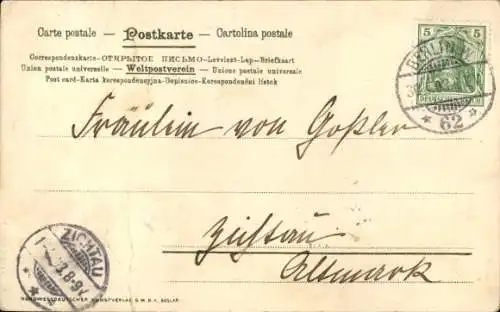 Carte postale — Postkarte — Cartolina postale
Correspondenzkarte - ОТКРЫТОЕ ПИСЬМО - Levelezö-Lap - Briefkaart
Union postale universelle — Weltpostverein — Unione postale universale
Post card - Karta korespondencyjna - Dopisnice - Korespondenční lístek
5 5
BERLIN W
62
Fräulein von Goßler
Zichtau
Altmark
ZICHTAU
8-9V
NORDWESTDEUTSCHER KUNSTVERLAG G.M.B.H. GOSLAR.